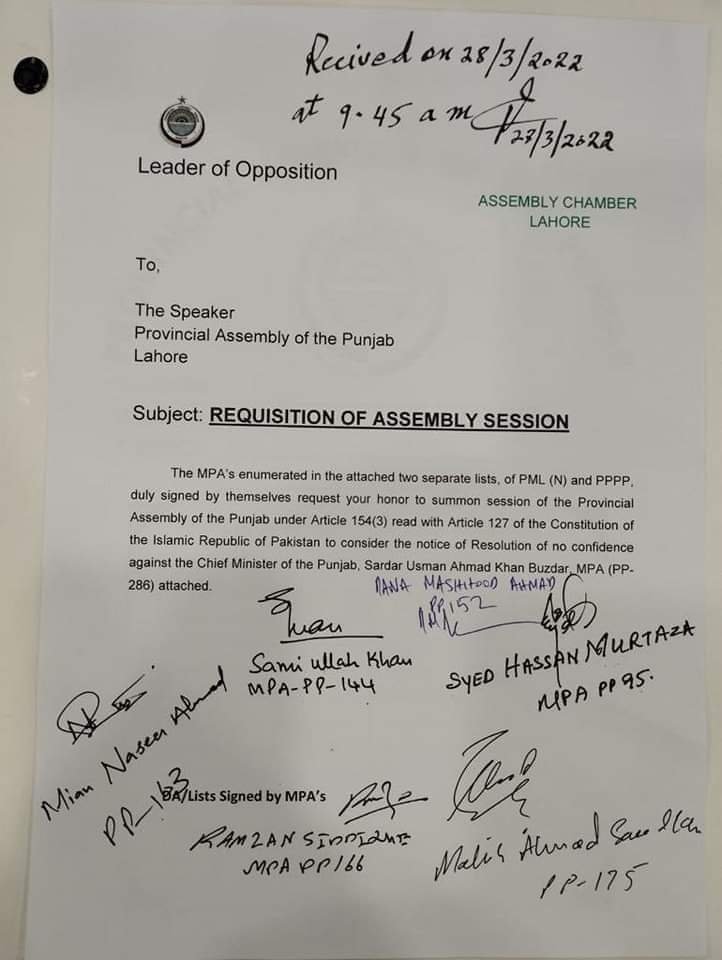 Recived on 28/3/2022
at 9.45 a m
28/3/2022
Leader of Opposition
ASSEMBLY CHAMBER
LAHORE
To,
The Speaker
Provincial Assembly of the Punjab
Lahore
Subject: REQUISITION OF ASSEMBLY SESSION
The MPA's enumerated in the attached two separate lists, of PML (N) and PPPP,
duly signed by themselves request your honor to summon session of the Provincial
Assembly of the Punjab under Article 154(3) read with Article 127 of the Constitution of
the Islamic Republic of Pakistan to consider the notice of Resolution of no confidence
against the Chief Minister of the Punjab, Sardar Usman Ahmad Khan Buzdar, MPA (PP-
286) attached.
RANA MASHHOOD AHMAD
PP152
Sami ullah Khan
MPA-PP-144
SYED HASSAN MURTAZA
MPA PP95.
Mian Naseer Ahmad
PP-163
DA/Lists Signed by MPA's
RAMZAN SIDDIQUE
MPA PP166
Malik Ahmad Saeed Khan
PP-175